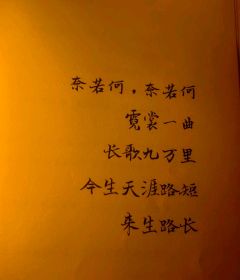 奈若何，奈若何
霓裳一曲
长歌九万里
今生天涯路短
来生路长